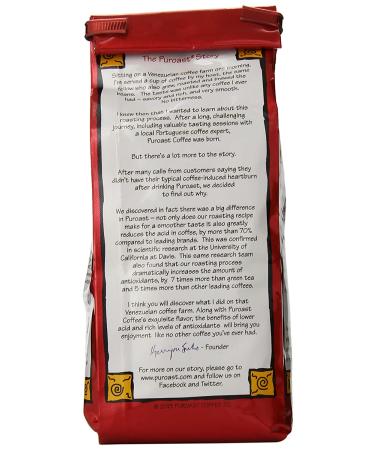 The Puroast® Story
Sitting on a Venezuelan coffee farm one morning,
I've served a cup of coffee by my host, the same
fellow who also grew, roasted and brewed the
beans. The taste was unlike any coffee I ever
had – savory and rich, and very smooth.
No bitterness.
I knew then that I wanted to learn about this
roasting process. After a long, challenging
journey, including valuable tasting sessions with
a local Portuguese coffee expert,
Puroast Coffee was born.
But there's a lot more to the story.
After many calls from customers saying they
didn't have their typical coffee-induced heartburn
after drinking Puroast, we decided
to find out why.
We discovered in fact there was a big difference
in Puroast – not only does our roasting recipe
make for a smoother taste it also greatly
reduces the acid in coffee, by more than 70%
compared to leading brands. This was confirmed
in scientific research at the University of
California at Davis. This same research team
also found that our roasting process
dramatically increases the amount of
antioxidants, by 7 times more than green tea
and 5 times more than other leading coffees.
I think you will discover what I did on that
Venezuelan coffee farm. Along with Puroast
Coffee's exquisite flavor, the benefits of lower
acid and rich levels of antioxidants will bring you
enjoyment like no other coffee you've ever had.
- Founder
For more on our story, please go to
www.puroast.com and follow us on
Facebook and Twitter.
PUROAST COFFEE CO.